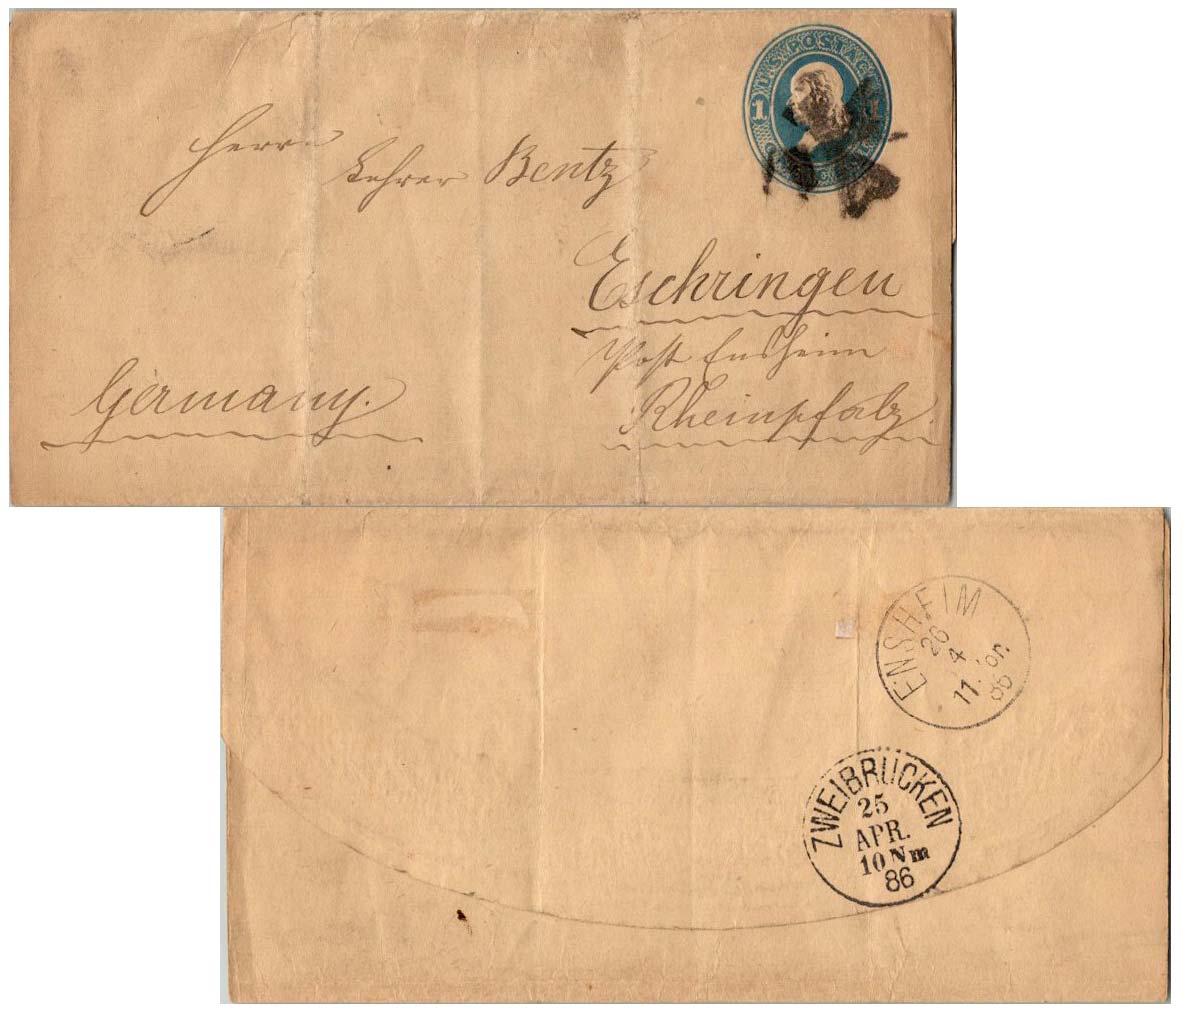 U.S. POSTAGE
1 1
Herrn
Lehrer Bentz
Eschringen
Post Ensheim
Rheinpfalz
Germany.
ENSHEIM
26
4
11. Vor.
86
ZWEIBRÜCKEN
25
APR.
10 Nm
86